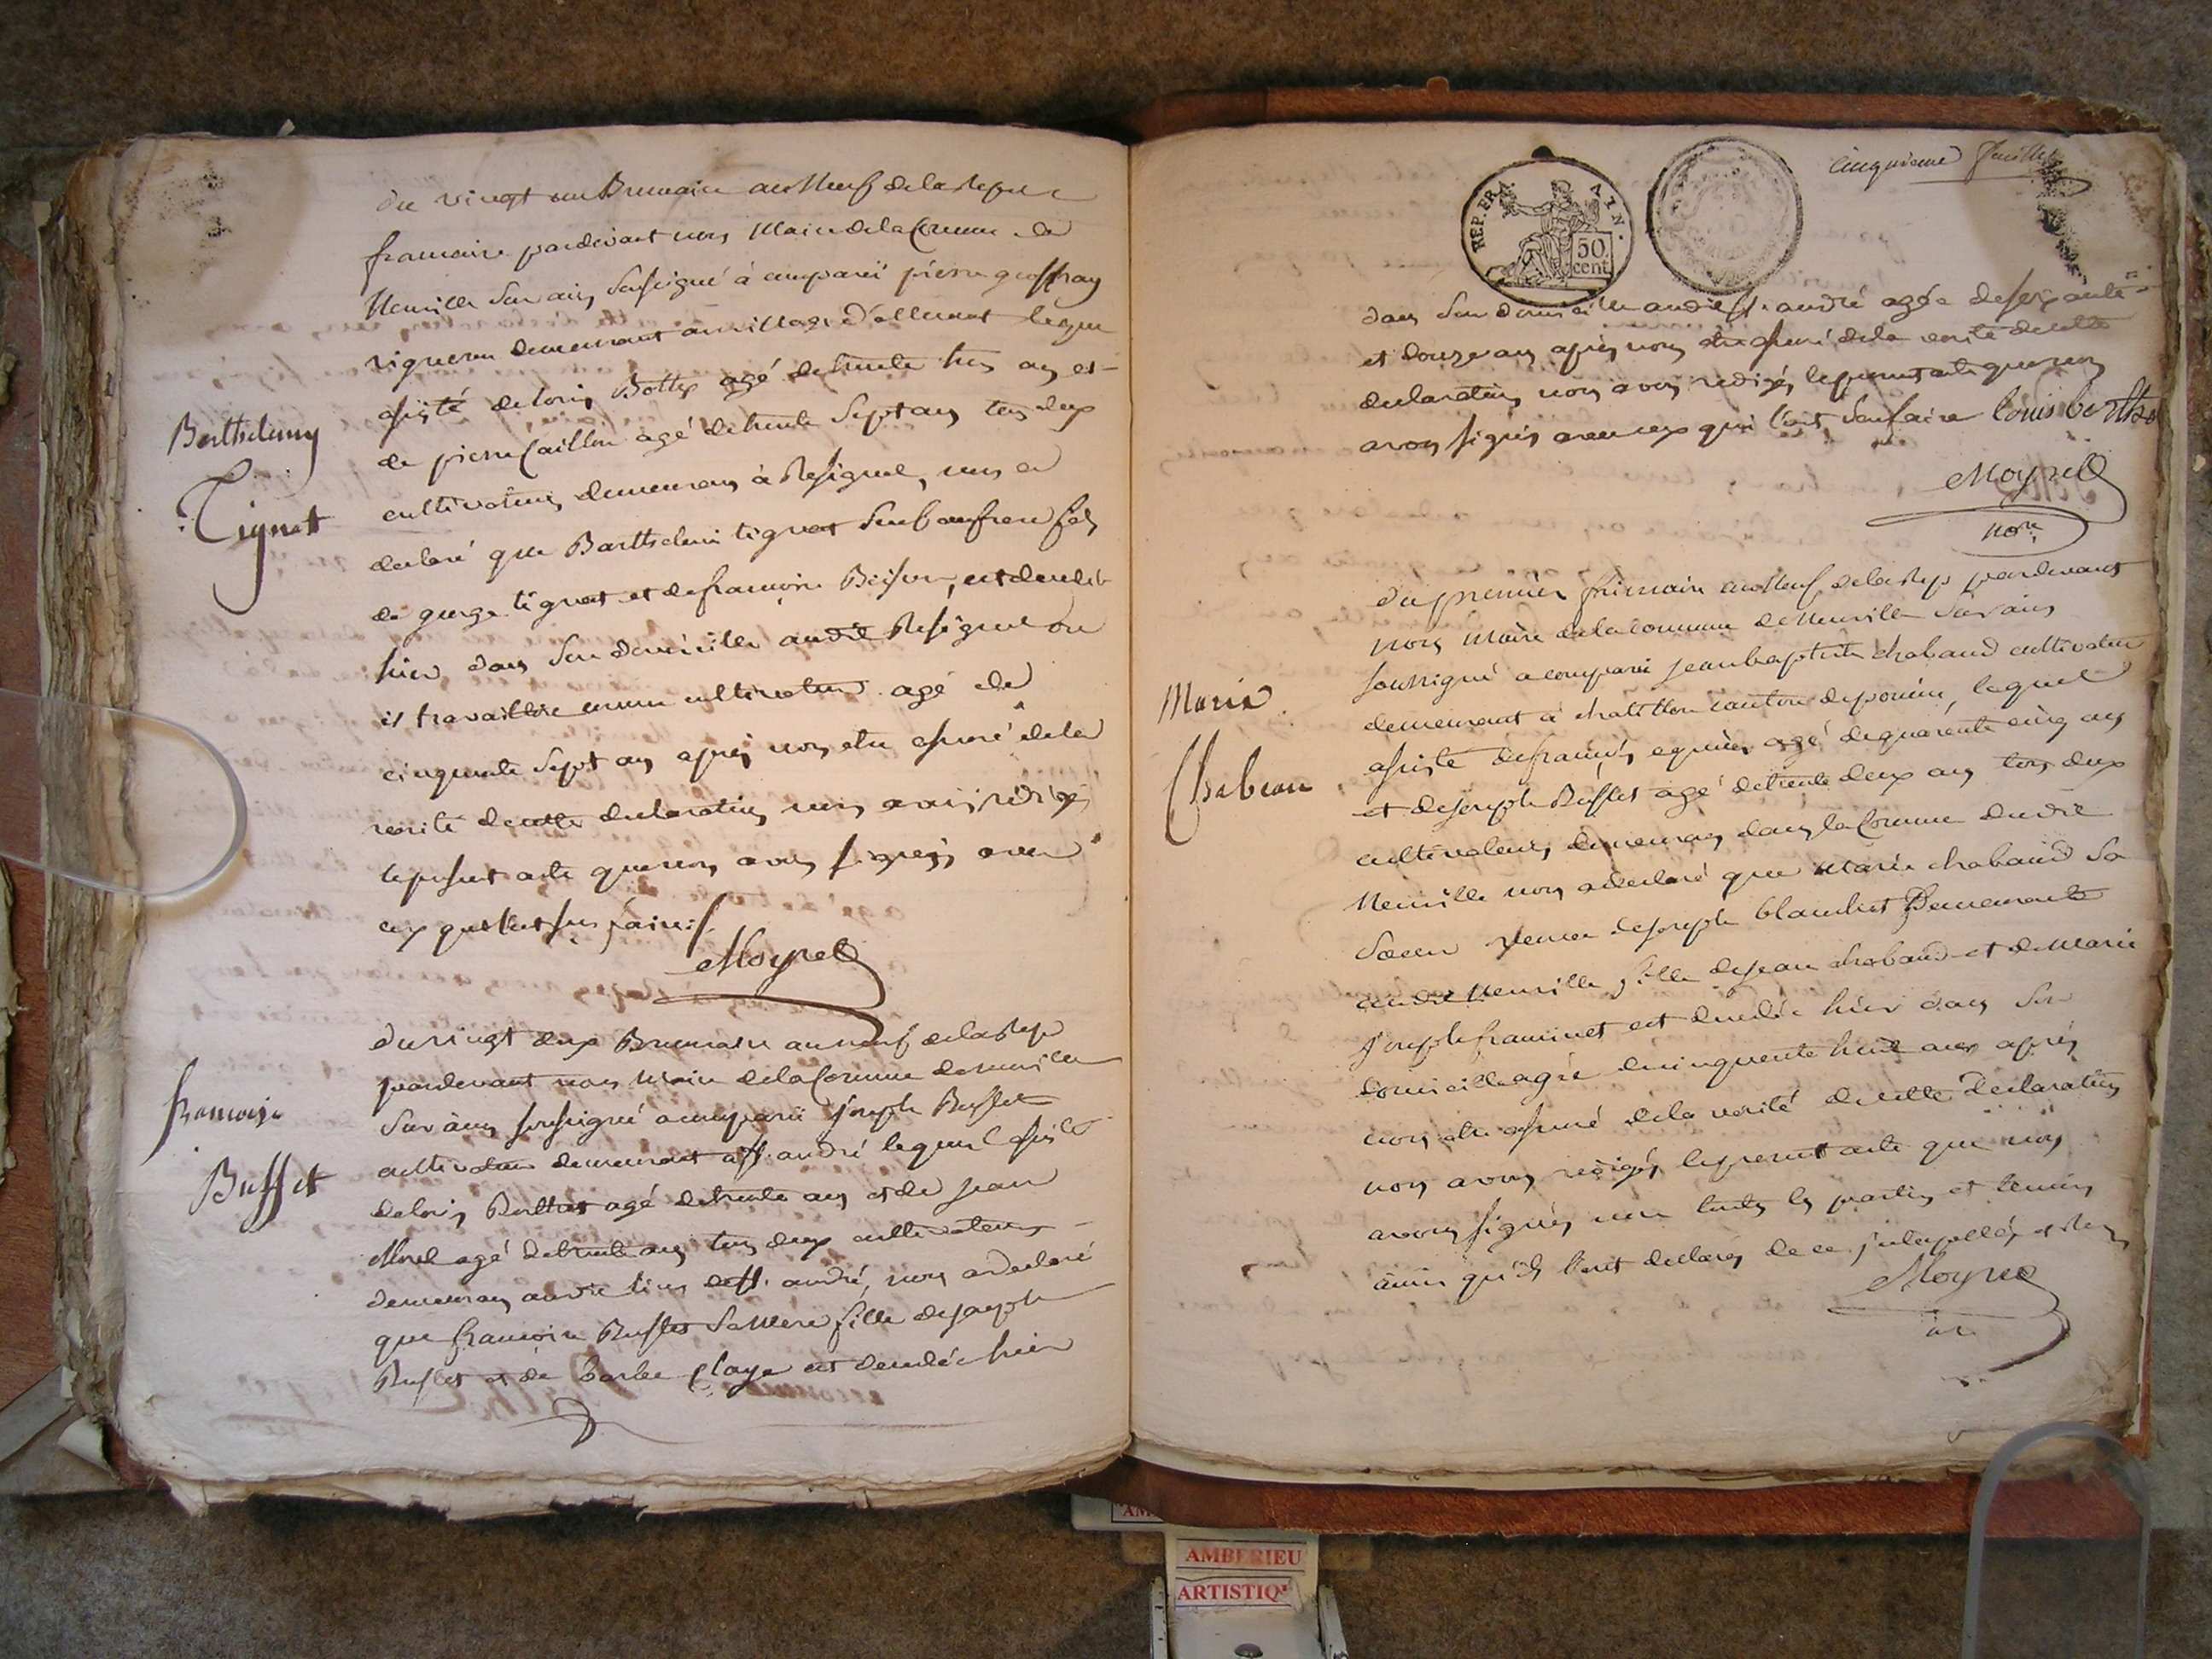 du vingt un Brumaire an Neuf de la Repu e
francaise pardevant nous Maire de la Comune de
Neuville Sur ain, Sousigné à comparu pierre geoffray
vigneron demeurant au village d'allement lequel
assisté de loui Bottex agé de trente trois ans et
de pierre Caillon agé de trente Sept ans tous deux
cultivateurs demeurans à Resignel, nous a
declaré que Barthelemi tignat Son beaufrere fils
de george tignat et de francoise est decedé
hier dans Son domicille audit Resignel ou
il travailloit comme cultivateur agé de
cinquante Sept ans après nous etre assuré de la
verité de cette declaration nous avons rédigés
le present acte que nous avons signés avec
ceux qui l'ont sus faire
Moyret
Barthelemy
Tignat
du vingt deux Brumaire an neuf de la Rep
pardevant nous Maire de la Comune de neuville
Sur ain sousigné a comparu joseph Buffet
cultivateur demeurant a St. andré lequel assisté
de loui Berthet agé de trente ans et de jean
Morel agé de trente ans tous deux cultivateurs
demeurans audit lieu de St. andré, nous a declaré
que francoise Buffet Sa Mere fille de joseph
Buffet et de barbe Claye est decedée hier
francoise
Buffet
cinquieme feuillet
REP. FRA. 50 cent
dans Son domicille audit St. andré agée de soixante
et douze ans après nous etre assuré de la verité de cette
declaration nous avons redigés le present acte que nous
avons signés avec ceux qui l'ont Sceu faire louis berthet
Moyret
du premier frimaire an Neuf de la Rep pardevant
nous Maire de la Commune de Neuville Sur ain
soussigné a comparu jean baptiste chabaud cultivateur
demeurant à chatillon canton de poncin, lequel
assisté de francois agé de quarante cinq ans
et de joseph Buffet agé de trente deux ans tous deux
cultivateurs demeurans dans la Comune dudit
Neuville nous a declaré que Marie chabaud Sa
Soeur veuve de joseph blanchet Demeurante
audit Neuville fille de jean chabaud et de Marie
josephe franinet est decedée hier dans Son
domicille agée de cinquante huit ans après
nous etre assuré de la verité de cette Declaration
nous avons redigés le present acte que nous
avons signés non toutes les parties et temoins
ainsi qu'ils l'ont declarés de ce
Moyret
Marie
Chabeau
AMBERIEU
ARTISTIQ